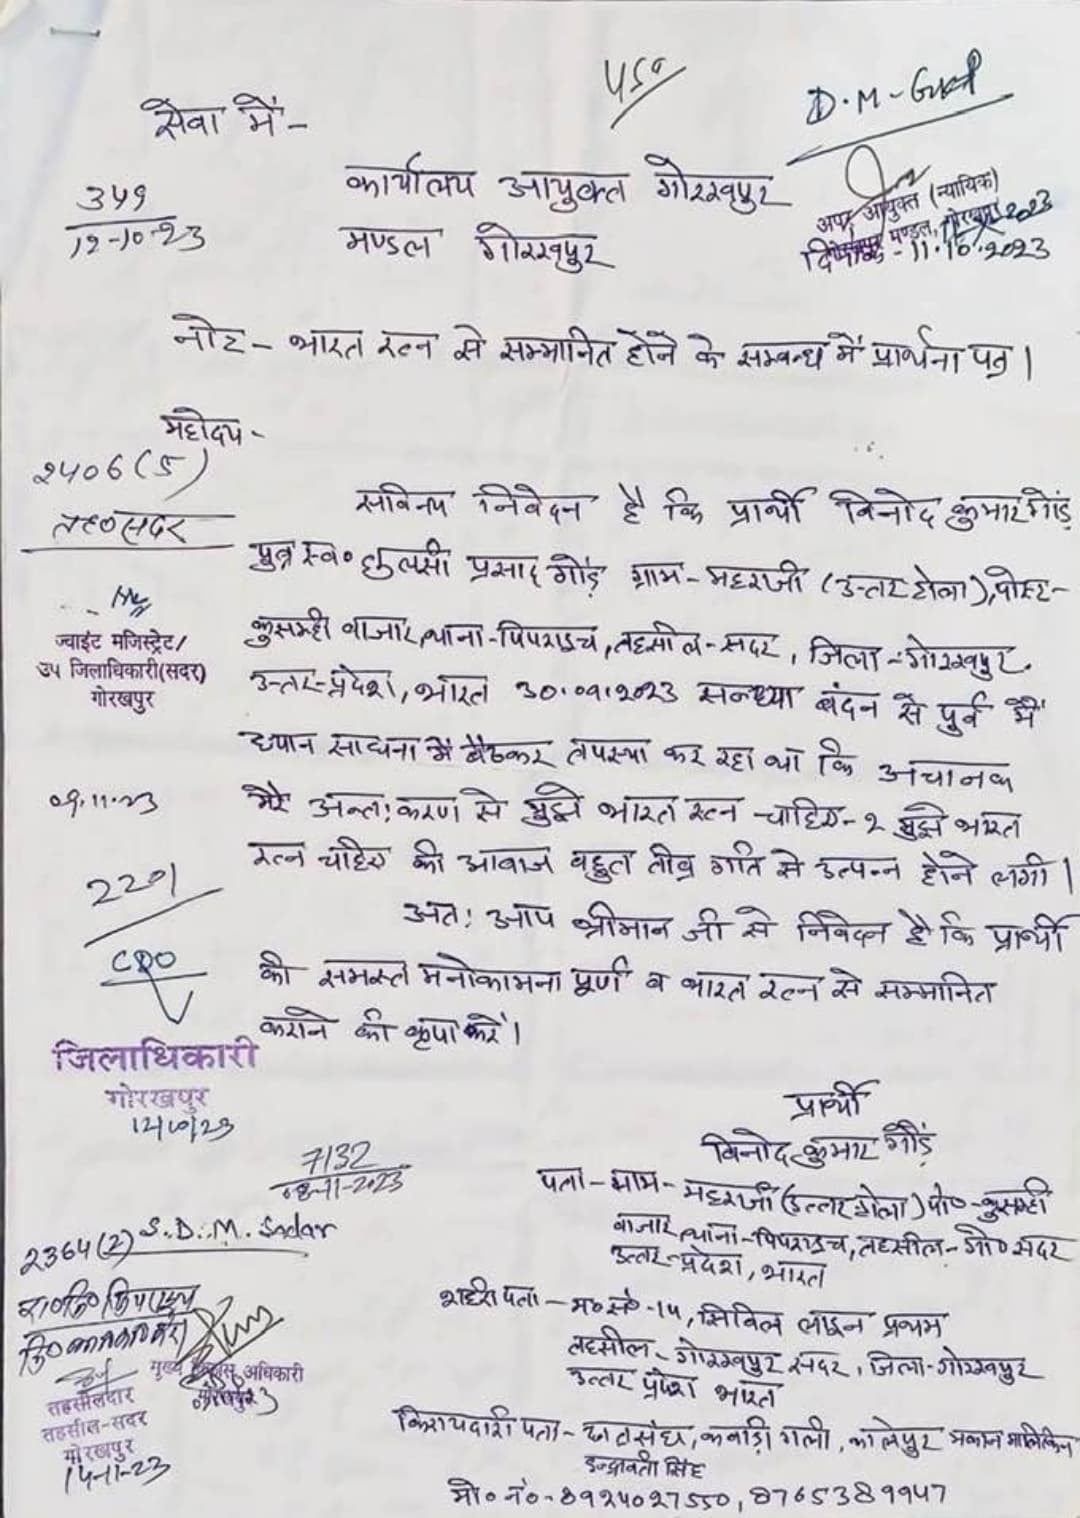 सेवा में-
450
D.M-GKP
349
12-10-23
कार्यालय आयुक्त गोरखपुर
मण्डल गोरखपुर
अपर आयुक्त (न्यायिक)
मण्डल, गोरखपुर
दिनांक-11.10.2023
नोट- भारत रत्न से सम्मानित होने के सम्बन्ध में प्रार्थना पत्र।
महोदय-
2406(5)
तह० सदर
सविनय निवेदन है कि प्रार्थी विनोद कुमार गौंड़
पुत्र स्व० तुलसी प्रसाद गौंड़ ग्राम-महराजी (उत्तर टोला), पोस्ट-
कुसम्ही बाजार, थाना-पिपराइच, तहसील-सदर, जिला-गोरखपुर.
उत्तर-प्रदेश, भारत 30.09.2023 सन्ध्या बंदन से पुर्व मैं
ध्यान साधना में बैठकर तपस्या कर रहा था कि अचानक
मेरे अन्त:करण से मुझे भारत रत्न चाहिए-2 मुझे भारत
रत्न चाहिए की आवाज बहुत तीव्र गति से उत्पन्न होने लगी।
अत: आप श्रीमान जी से निवेदन है कि प्रार्थी
की समस्त मनोकामना पूर्ण व भारत रत्न से सम्मानित
कराने की कृपा करें।
ज्वाईट मजिस्ट्रेट/
उप जिलाधिकारी(सदर)
गोरखपुर
09.11.23
2201
CDO
जिलाधिकारी
गोरखपुर
12/10/23
7132
08-11-2023
2364(2) S.D.M. Sadar
मुख्य विकास अधिकारी
गोरखपुर
तहसीलदार
तहसील-सदर
गोरखपुर
14-11-23
प्रार्थी
विनोद कुमार गौंड़
पता-ग्राम-महराजी (उत्तर टोला) पो०-कुसम्ही
बाजार, थाना-पिपराइच, तहसील-गो० सदर
उत्तर-प्रदेश, भारत
शहरी पता-म० सं०-14, सिविल लाइन प्रथम
तहसील-गोरखपुर सदर, जिला-गोरखपुर
उत्तर प्रदेश भारत
किरायदारी पता- कबाड़ी गली, मकान मालकिन
इन्द्रावती सिंह
मो० नं०-8924027550, 8765389947